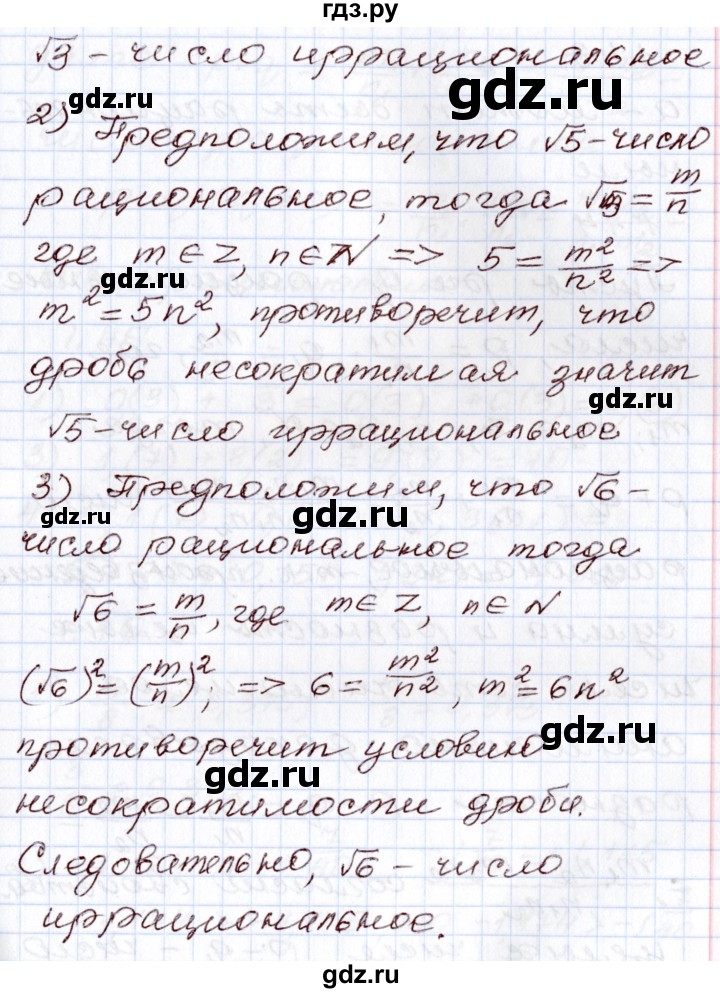 гдз.ру
√3 – число иррациональное
gdz.ru
gdz.ru
2) Предположим, что √5 – число
рациональное, тогда √5 = m/n
где m ∈ Z, n ∈ N => 5 = m²/n² =>
gdz.ru
m² = 5n², противоречит, что
дробь несократимая значит
gdz.ru
√5 – число иррациональное
3) Предположим, что √6 –
gdz.ru
gdz.ru
число рациональное тогда
√6 = m/n, где m ∈ Z, n ∈ N
(√6)² = (m/n)²; => 6 = m²/n², m² = 6n²
противоречит условию
gdz.ru
gdz.ru
несократимости дроби.
Следовательно, √6 – число
иррациональное.
gdz.ru